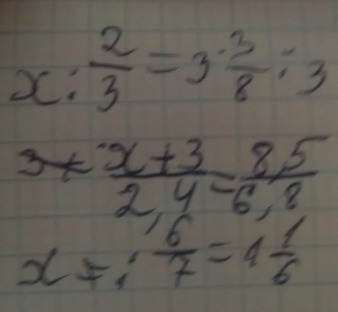 x : 2/3 = 3 3/8 : 3
x+3/2,4 = 8,5/6,8
x : 6/7 = 1 1/6